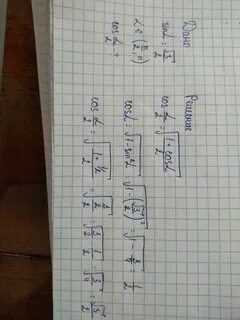 Дано
sinα = √3/2
α ∈ (π/2; π)
cos α/2 ?
Решение
cos α/2 = √((1+cosα)/2)
cosα = √(1-sin²α) = √(1-(√3/2)²) = √(1-3/4) = 1/2
cos α/2 = √((1+1/2)/2) = √((3/2)/2) = √(3/2 · 1/2) = √(3/4) = √3/2